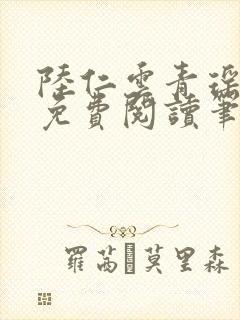 陸仁雲青瑤
免費閱讀筆
羅茜·莫里森